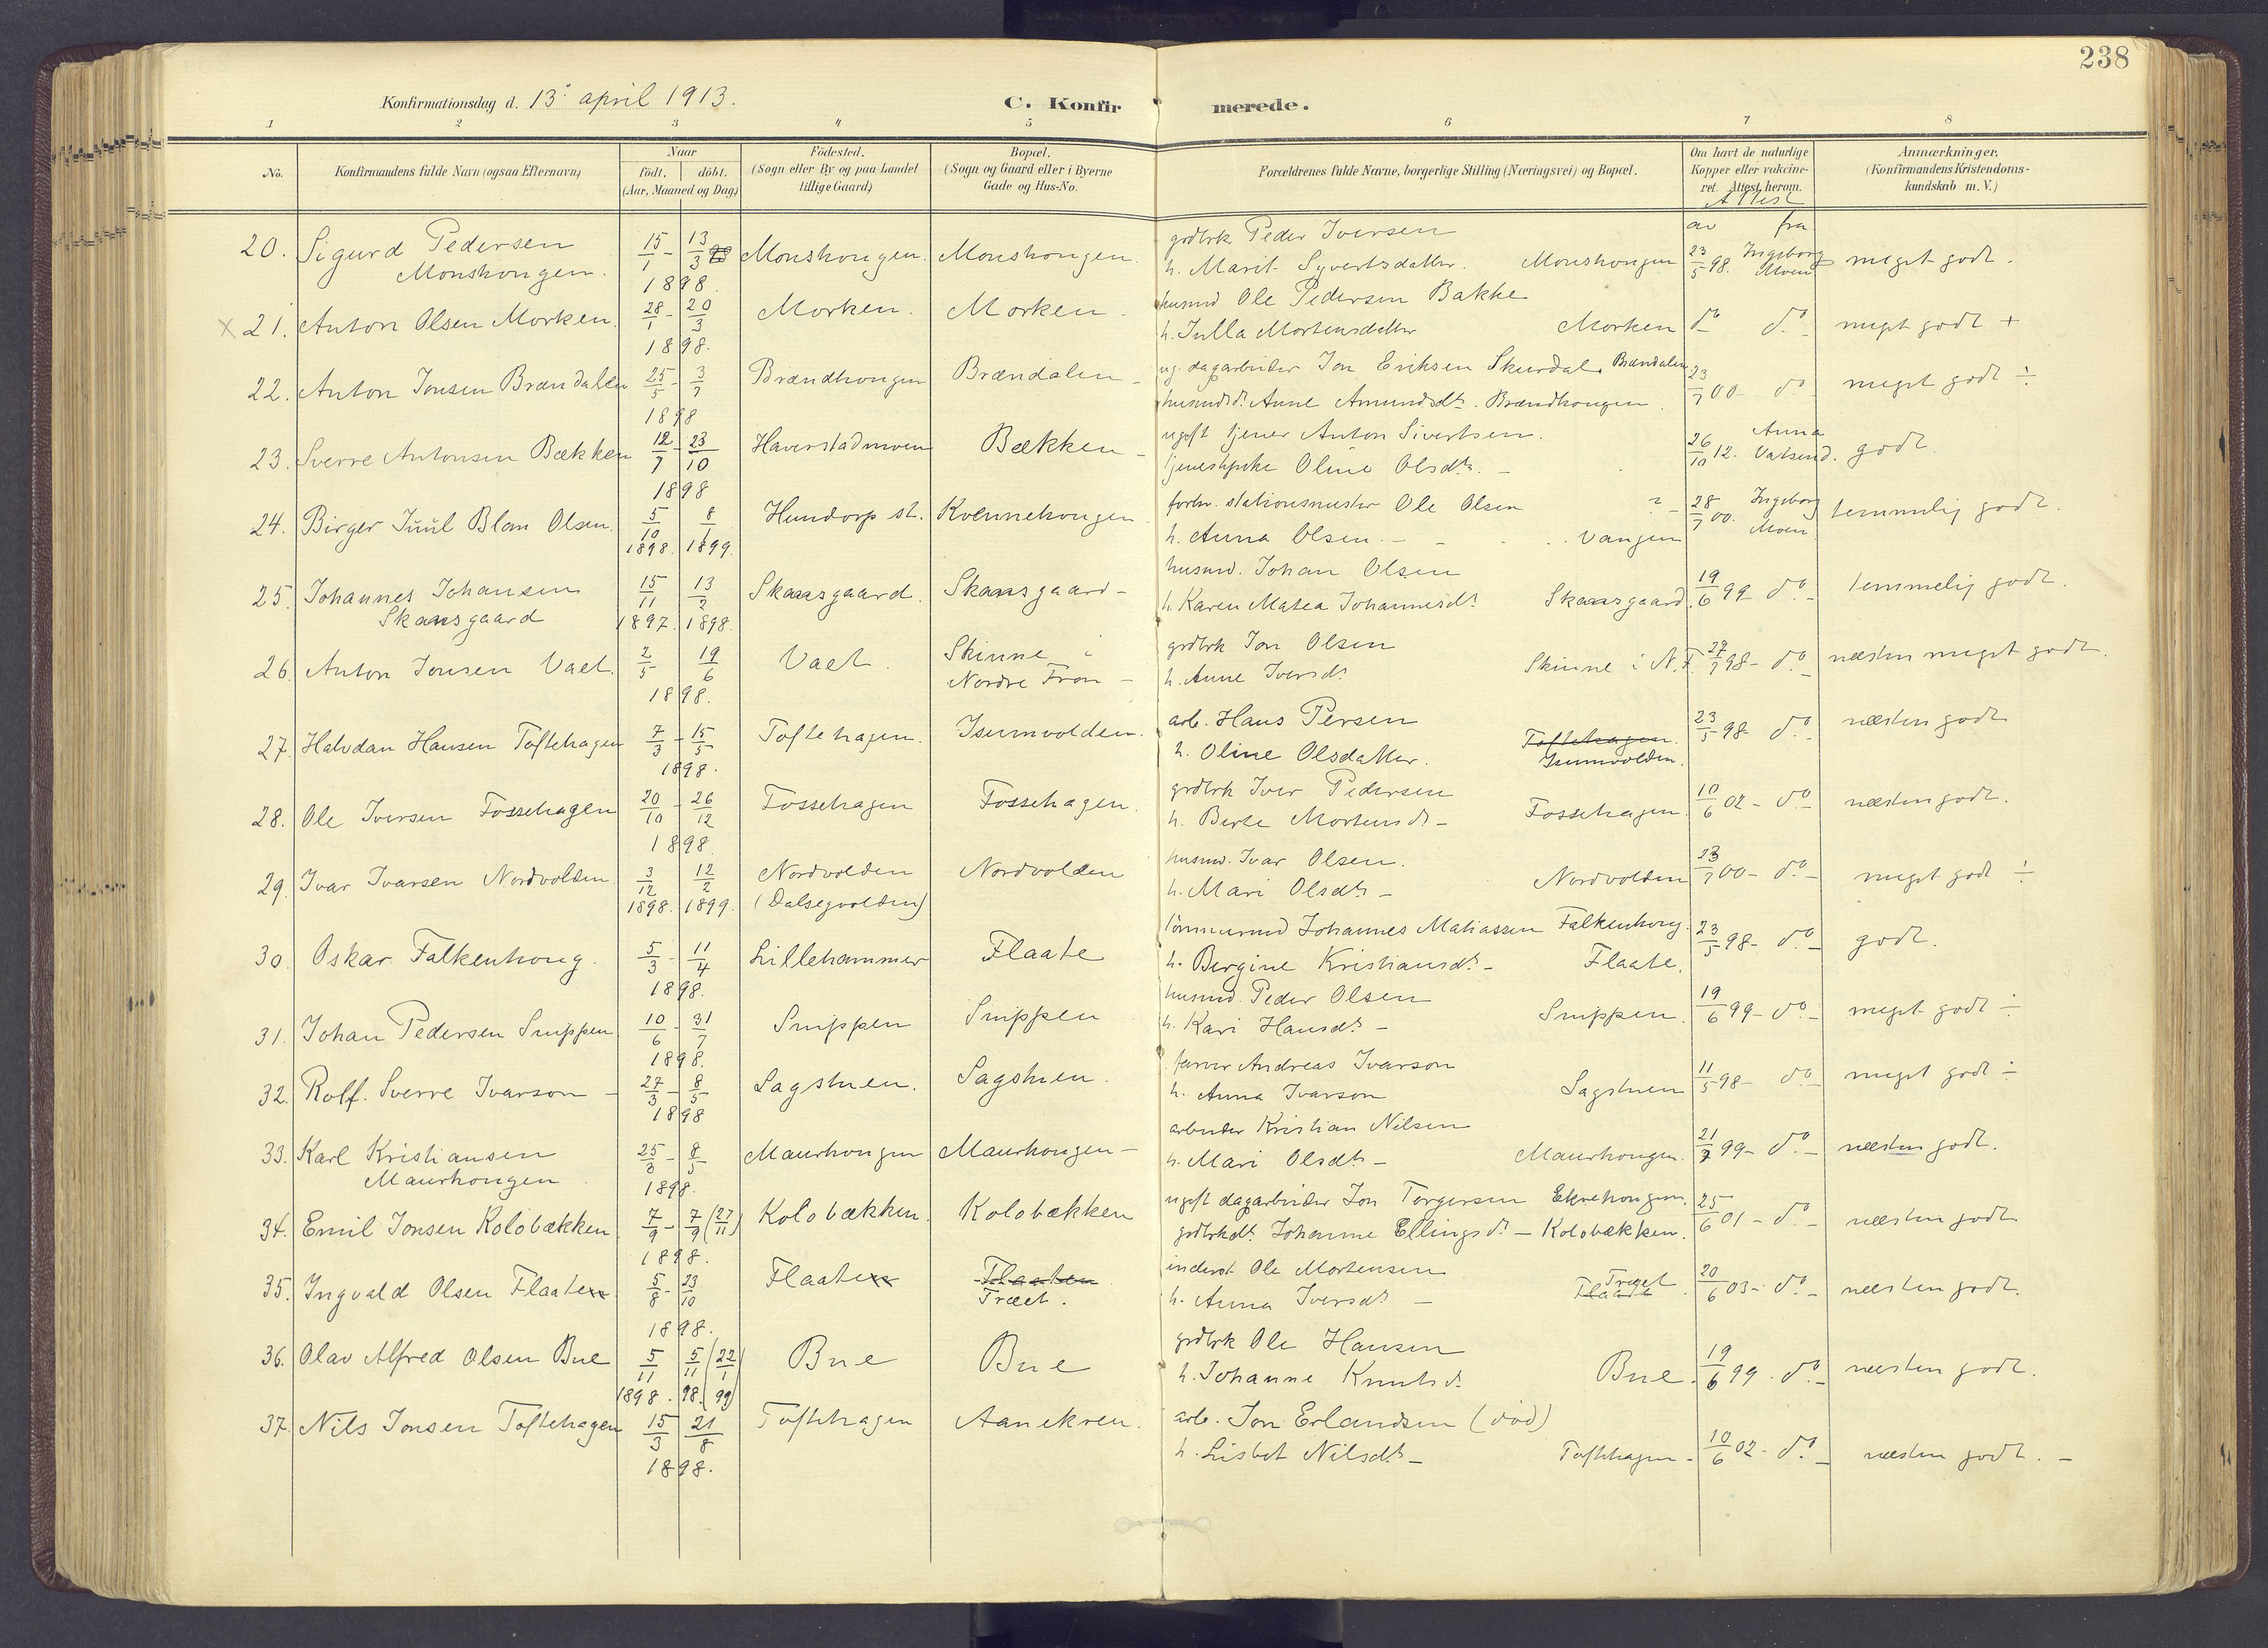 238
Konfirmationsdag d. 13de april 1913. C. Konfirmerede.
1 2 3 4 5 6 7 8
No. Konfirmandens fulde Navn (ogsaa Efternavn) Naar födt. döbt. (Aar, Maaned og Dag) Födested. (Sogn eller By og paa Landet tillige Gaard) Bopæl. (Sogn og Gaard eller i Byerne Gade og Hus-No. Forældrenes fulde Navne, borgerlige Stilling (Næringsvei) og Bopæl. Om havt de naturlige Kopper eller vakcineret. Attest herom. Anmærkninger, (Konfirmandens Kristendomskundskab m. V.)
Attest
av fra
20. Sigurd Pedersen 15/1 - 13/3 Monshougen. Monshougen. grdbrk Peder Iversen
Monshougen. 1898. h. Marit Syvertsdatter. Monshougen 23/5 98. Ingeborg Moen meget godt.
x 21. Anton Olsen Morken. 28/1 - 20/3 Morken. Morken. husmd Ole Pedersen Bakke
1898. h. Julla Mortensdatter Morken do do meget godt +
22. Anton Jonsen Brændalen 25/5 - 3/7 Brændhougen Brændalen - ug. dagarbeider Jon Eriksen Skurdal. Brændalen
1898 husmdsdt. Anne Amundsdt. Brændhougen. 23/7 00 - do meget godt ÷
23. Sverre Antonsen Bækken 12/7 - 23/10 Haverstadmoen Bækken - ugift tjener Anton Sivertsen.
1898 tjenestpike Oline Olsdt. - 26/10 12. Anna Vatsend. godt.
24. Birger Juul Blom Olsen. 5/10 8/1 Hundorp st. Kvennehougen forhv. stationsmester Ole Olsen ?
1898. 1899. h. Anna Olsen. - Vangen 28/7 00. Ingeborg Moen temmelig godt.
25. Johannes Johansen 15/11 13/2 Skansgaard. Skansgaard - husmd. Johan Olsen
Skansgaard 1897. 1898. h. Karen Matea Johannesdt. Skansgaard. 19/6 99 do - temmelig godt.
26. Anton Jonsen Vaet. 2/5 19/6 Vaet. Skinne i grdbrk Jon Olsen
1898. Nordre Fron - h. Anne Iversdt Skinne i N.F. 27/7 98 - do næsten meget godt.
27. Halvdan Hansen Toftehagen 7/3 - 15/5 Toftehagen. Isumvolden. arb. Hans Persen
1898. h. Oline Olsdatter. Toftehagen. Isumvolden. 23/5 98 - do - næsten godt
28. Ole Iversen Fossehagen 20/10 - 26/12 Fossehagen Fossehagen. grdbrk Iver Pedersen
1898 h. Berte Mortensdt - Fossehagen. 10/6 02 - do næsten godt.
29. Ivar Ivarsen Nordvolden 3/12 12/2 Nordvolden Nordvolden husmd. Ivar Olsen.
1898. 1899. (Dalsegvolden) h. Mari Olsdt - Nordvolden 23/7 00 - do - meget godt ÷
30. Oskar Falkenhoug. 5/3 - 11/4 Lillehammer Flaate tömmermd Johannes Matiassen Falkenhoug.
1898. h. Bergine Kristiansdt - Flaate. 23/5 98 - do - godt.
31. Johan Pedersen Snippen 10/6 - 31/7 Snippen Snippen husmd. Peder Olsen
1898. h. Kari Hansdt - Snippen. 19/6 99 - do - meget godt ÷
32. Rolf Sverre Ivarson - 27/3 - 8/5 Sagstuen. Sagstuen. farver Andreas Ivarson
1898 h. Anna Ivarson Sagstuen 11/5 98 - do - meget godt ÷
33. Karl Kristiansen 25/3 - 8/5 Maurhougen Maurhougen - arbeider Kristian Nilsen
Maurhougen 1898. h. Mari Olsdt - Maurhougen. 21/7 99 - do - næsten godt.
34. Emil Jonsen Kolobækken. 7/9 - 7/9 (27/11) Kolobækken. Kolobækken ugift dagarbeider Jon Torgersen Ekrehougen.
1898. grdbrkdt. Johanne Ellingsdt - Kolobækken. 25/6 01 - do - næsten godt
35. Ingvald Olsen Flaaten 5/8 - 23/10 Flaaten Flaaten inderst Ole Mortensen
1898. Træet. h. Anna Iversdt - Træet Flaate. 20/6 03 - do - næsten godt.
36. Olav Alfred Olsen Bue 5/11 5/11 (22/1) Bue Bue grdbrk Ole Hansen
1898. 98. (99) h. Johanne Knutsdt. Bue. 19/6 99. do - næsten godt.
37. Nils Jonsen Toftehagen 15/3 21/8 Toftehagen Aanekren. arb. Jon Erlandsen (död)
1898. h. Lisbet Nilsdt - Toftehagen - 10/6 02 - do - næsten godt. -